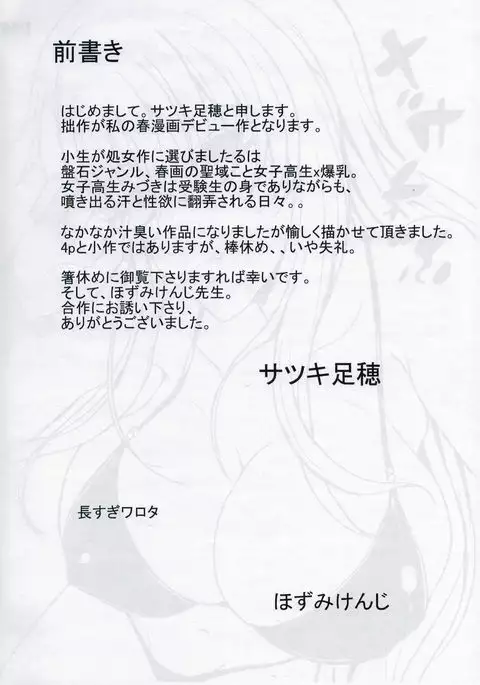 前書き
はじめまして。サツキ足穂と申します。
拙作が私の春漫画デビュー作となります。
小生が処女作に選びましたるは
盤石ジャンル、春画の聖域こと女子高生x爆乳。
女子高生みづきは受験生の身でありながらも、
噴き出る汗と性欲に翻弄される日々。。
なかなか汁臭い作品になりましたが愉しく描かせて頂きました。
4pと小作ではありますが、棒休め、、いや失礼。
箸休めに御覧下さりますれば幸いです。
そして、ほずみけんじ先生。
合作にお誘い下さり、
ありがとうございました。
サツキ足穂
長すぎワロタ
ほずみけんじ